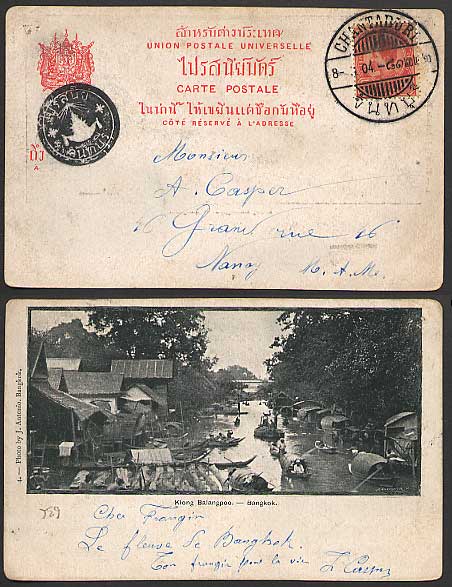 สำหรับต่างประเทศ
UNION POSTALE UNIVERSELLE
ไปรสนีย์บัตร์
CARTE POSTALE
ในน่านี้ ให้เขียนแต่ชื่อกับที่อยู่
CÔTÉ RÉSERVÉ À L'ADRESSE
CHANTABURI
8- 04
ถึง
A
Monsieur
A. Casper
16 Grand rue 16
Nancy M. et Me.
4. — Photo by J. Antonio. Bangkok.
Klong Balangpoo. — Bangkok.
Cher Frangin
Le fleuve de Bangkok.
Ton frangin pour la vie